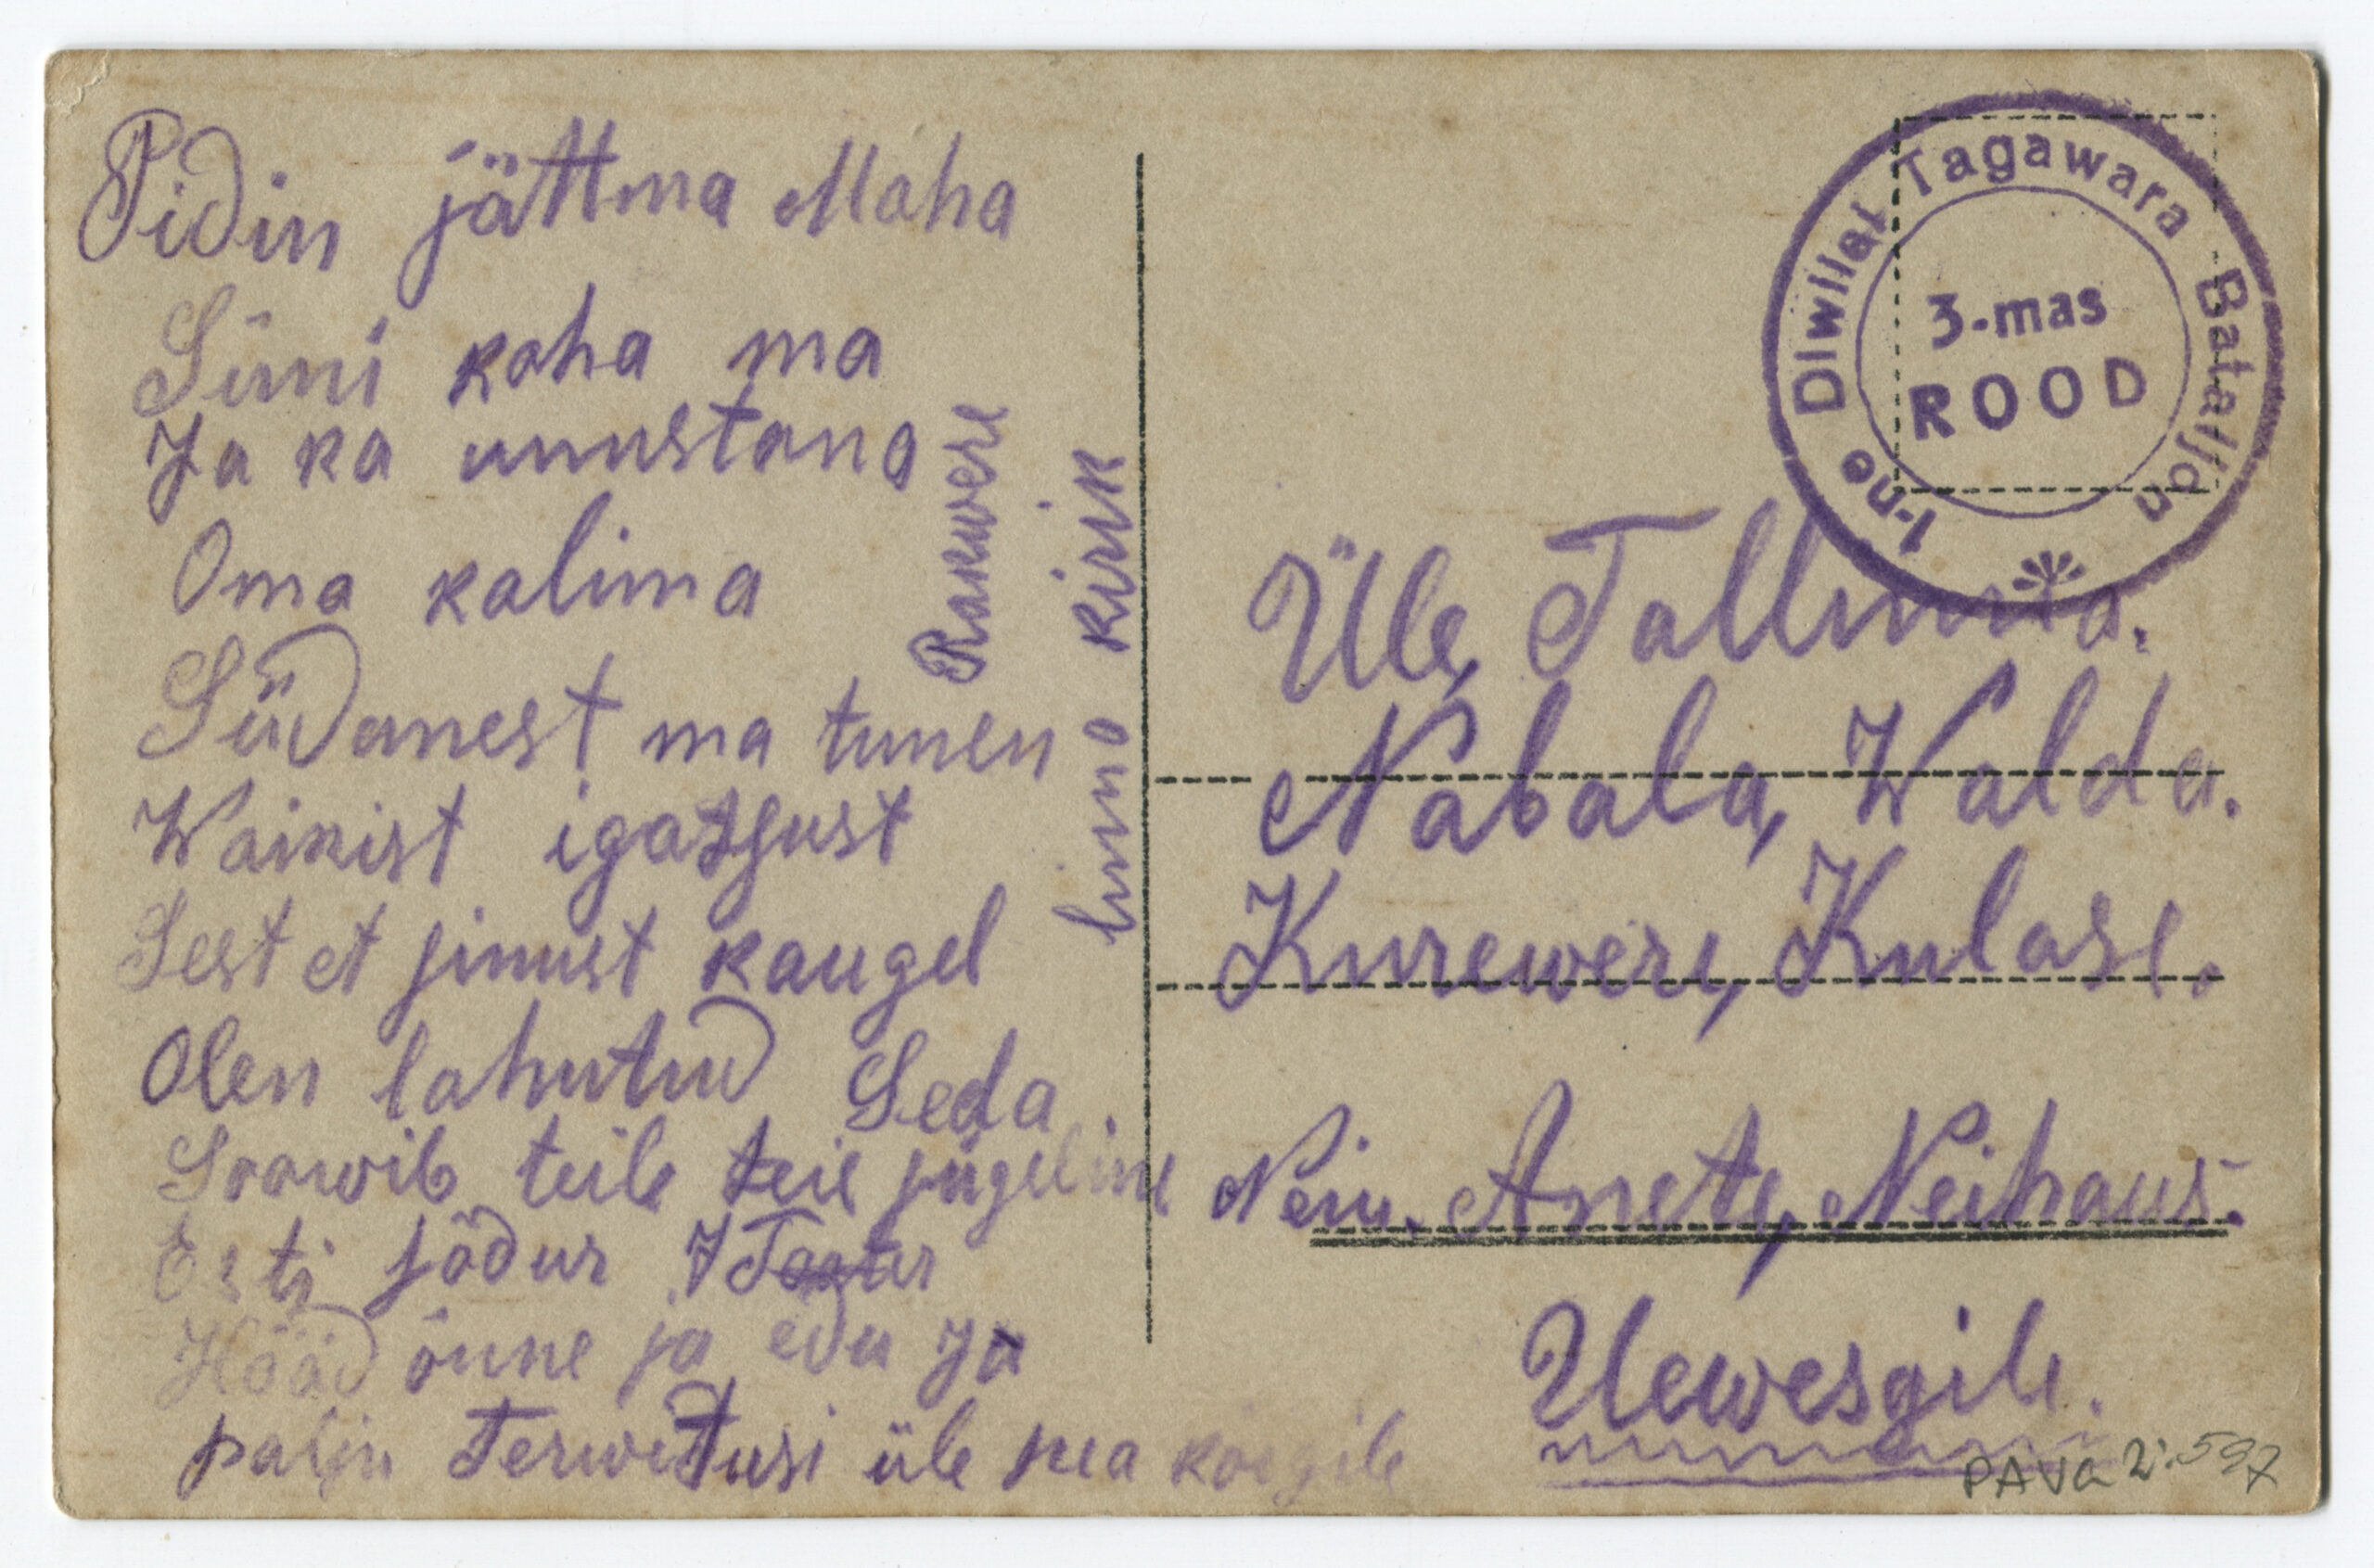 Pidin jättma Maha
Sinni koha ma
Ja ka unustana
Oma kalima
Südamest ma tunen
Waikist igatsust
Sest et sinust kaugel
Olen lahutud Seda
Soowib teile teie sügeline
Eesti sõdur
Hääd õnne ja edu Ja
palju Terwitusi üle pea kõigile
Rakwere
linna kirik
I-ne Diwiisi Tagawara Bataljon
3-mas
ROOD
Üle, Tallinna.
Nabala, Walda.
Kurewere, Kulase.
Neiu. Anete, Neihaus.
Uewesgile.
PAVa 2:597